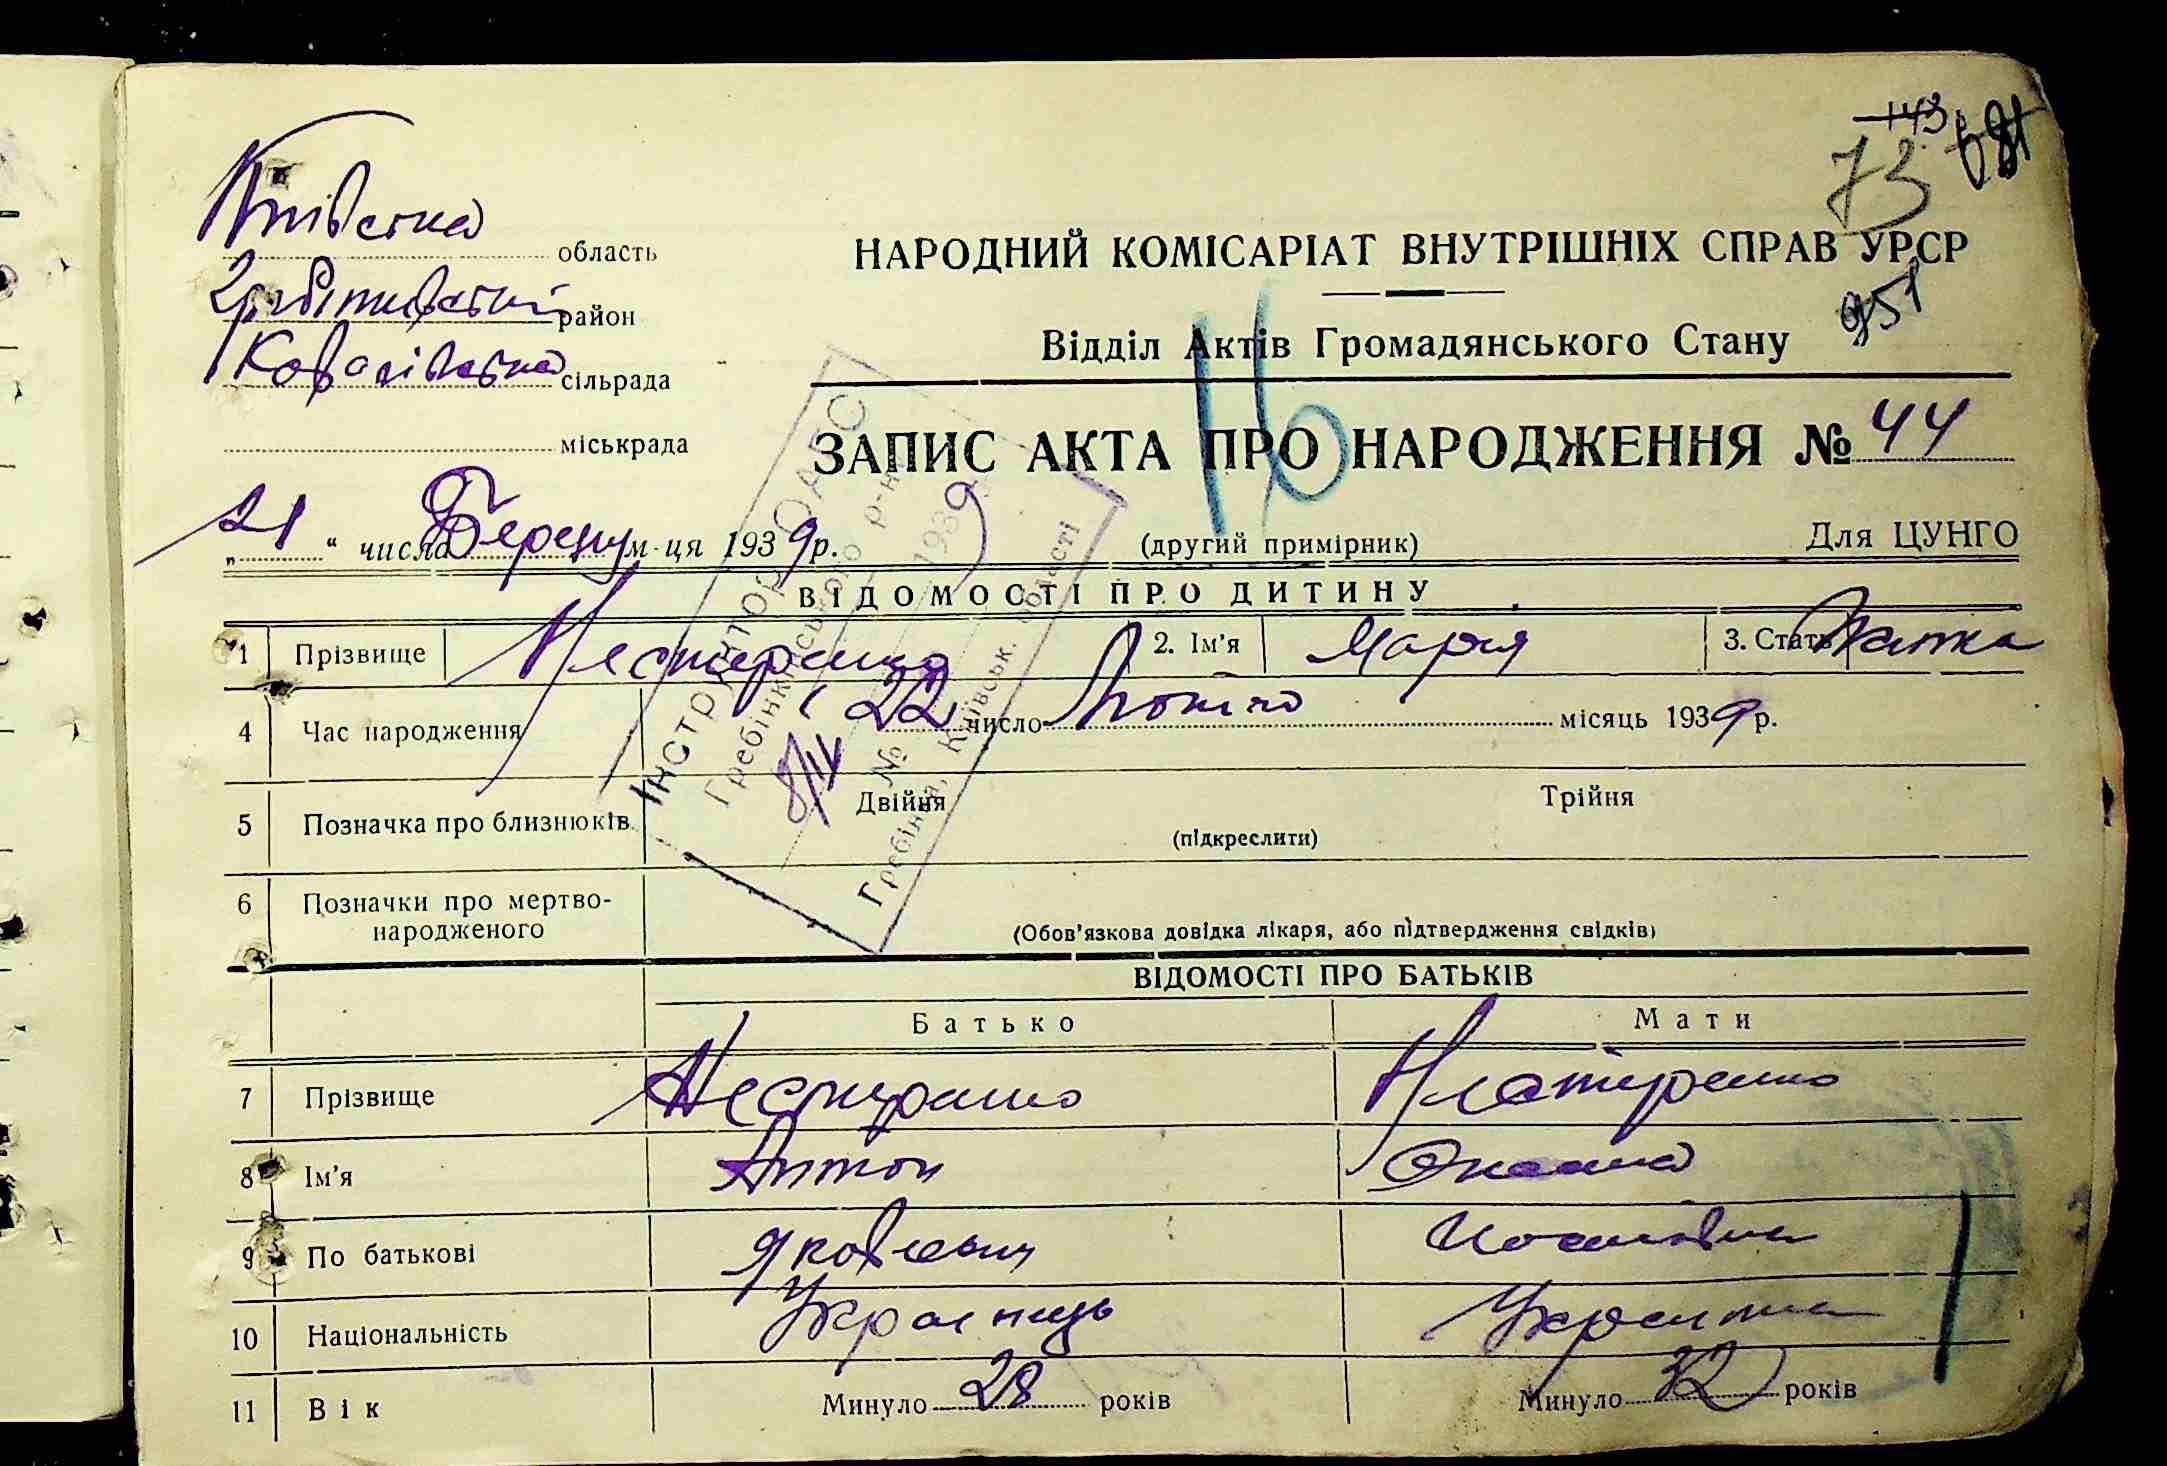 143 681
73
Київська область
НАРОДНИЙ КОМІСАРІАТ ВНУТРІШНІХ СПРАВ УРСР
Гребінківський район
951
Відділ Актів Громадянського Стану
Ковалівська сільрада
16
міськрада
ЗАПИС АКТА ПРО НАРОДЖЕННЯ № 44
„21“ число Березня м-ця 1939 р.
(другий примірник)
Для ЦУНГО
ВІДОМОСТІ ПРО ДИТИНУ
1 Прізвище Нестеренко 2. Ім'я Марія 3. Стать Жіноча
4 Час народження 22 число Лютого місяць 1939 р.
5 Позначка про близнюків Двійня Трійня
(підкреслити)
6 Позначки про мертво-
народженого
(Обов'язкова довідка лікаря, або підтвердження свідків)
ІНСТРУКТОР ОАГС
Гребінківського р-ну
8/IV 1939
№
Гребінка, Київськ. області
ВІДОМОСТІ ПРО БАТЬКІВ
Батько Мати
7 Прізвище Нестеренко Нестеренко
8 Ім'я Антон Оксана
9 По батькові Яковлевич
10 Національність Українець Українка
11 Вік Минуло 28 років Минуло 32 років